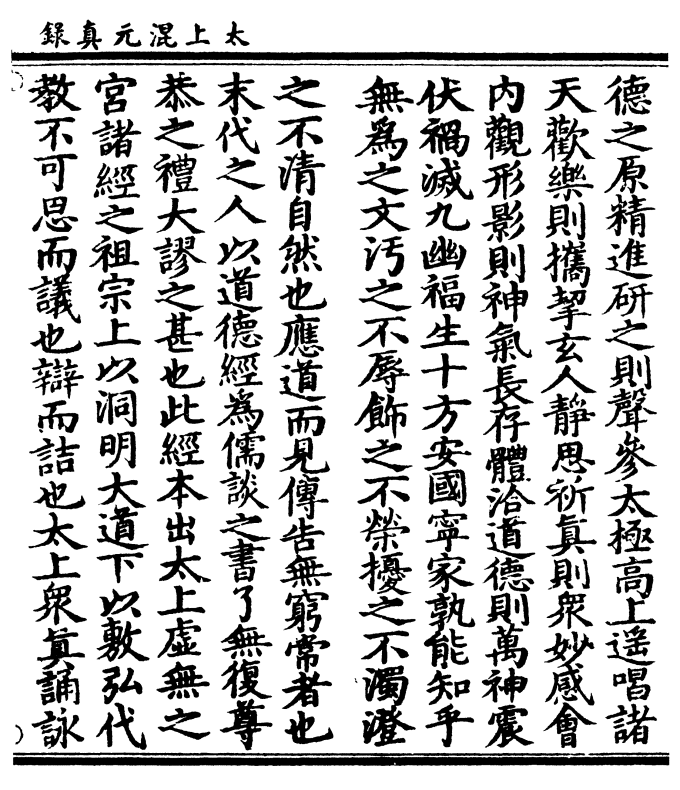 太上混元真録
德之原精進研之則聲參太極高上遥唱諸
天歡樂則攜挈玄人靜思祈眞則衆妙感會
内觀形影則神氣長存體洽道德則萬神震
伏禍滅九幽福生十方安國寧家孰能知乎
無爲之文汚之不辱飾之不榮擾之不濁澄
之不清自然也應道而見傳告無窮常者也
末代之人以道德經爲儒談之書了無復尊
恭之禮大謬之甚也此經本出太上虚無之
宫諸經之祖宗上以洞明大道下以敷弘代
教不可思而議也辯而詰也太上衆眞誦詠